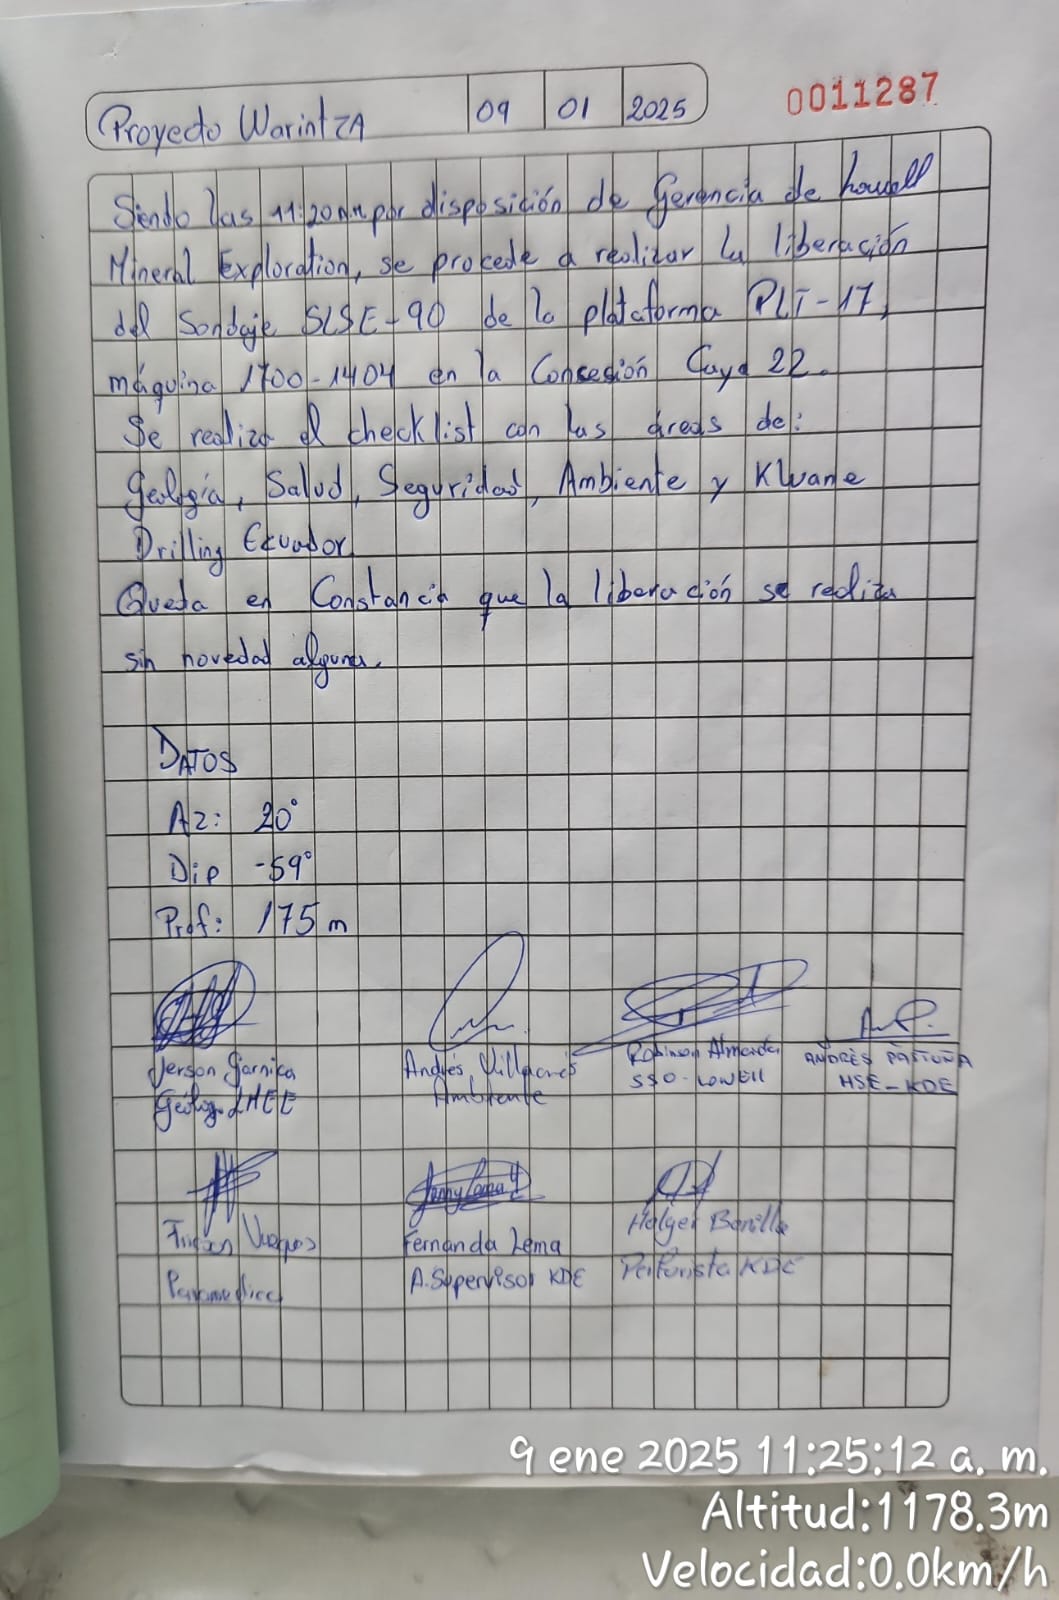 Proyecto Warintza 09 01 2025
0011287
Siendo las 11:20 am por disposición de Gerencia de Lowell
Mineral Exploration, se procede a realizar la liberación
del Sondaje SLSE-90 de la plataforma PLT-17,
máquina 1700-1404 en la Concesión Caya 22.
Se realiza el checklist con las áreas de:
Geología, Salud, Seguridad, Ambiente y Kluane
Drilling Ecuador
Queda en Constancia que la liberación se realiza
sin novedad alguna.
DATOS
Az: 20°
Dip -59°
Prof: 175 m
Jerson Garnica Andrés Villacrés Robinson Almeida ANDRÉS PASTUÑA
Geólogo LMEE Ambiente SSO-LOWELL HSE-KDE
Fernanda Lema Holger Bonilla
Paramedico A. Supervisor KDE Perforista KDE
9 ene 2025 11:25:12 a. m.
Altitud:1178.3m
Velocidad:0.0km/h